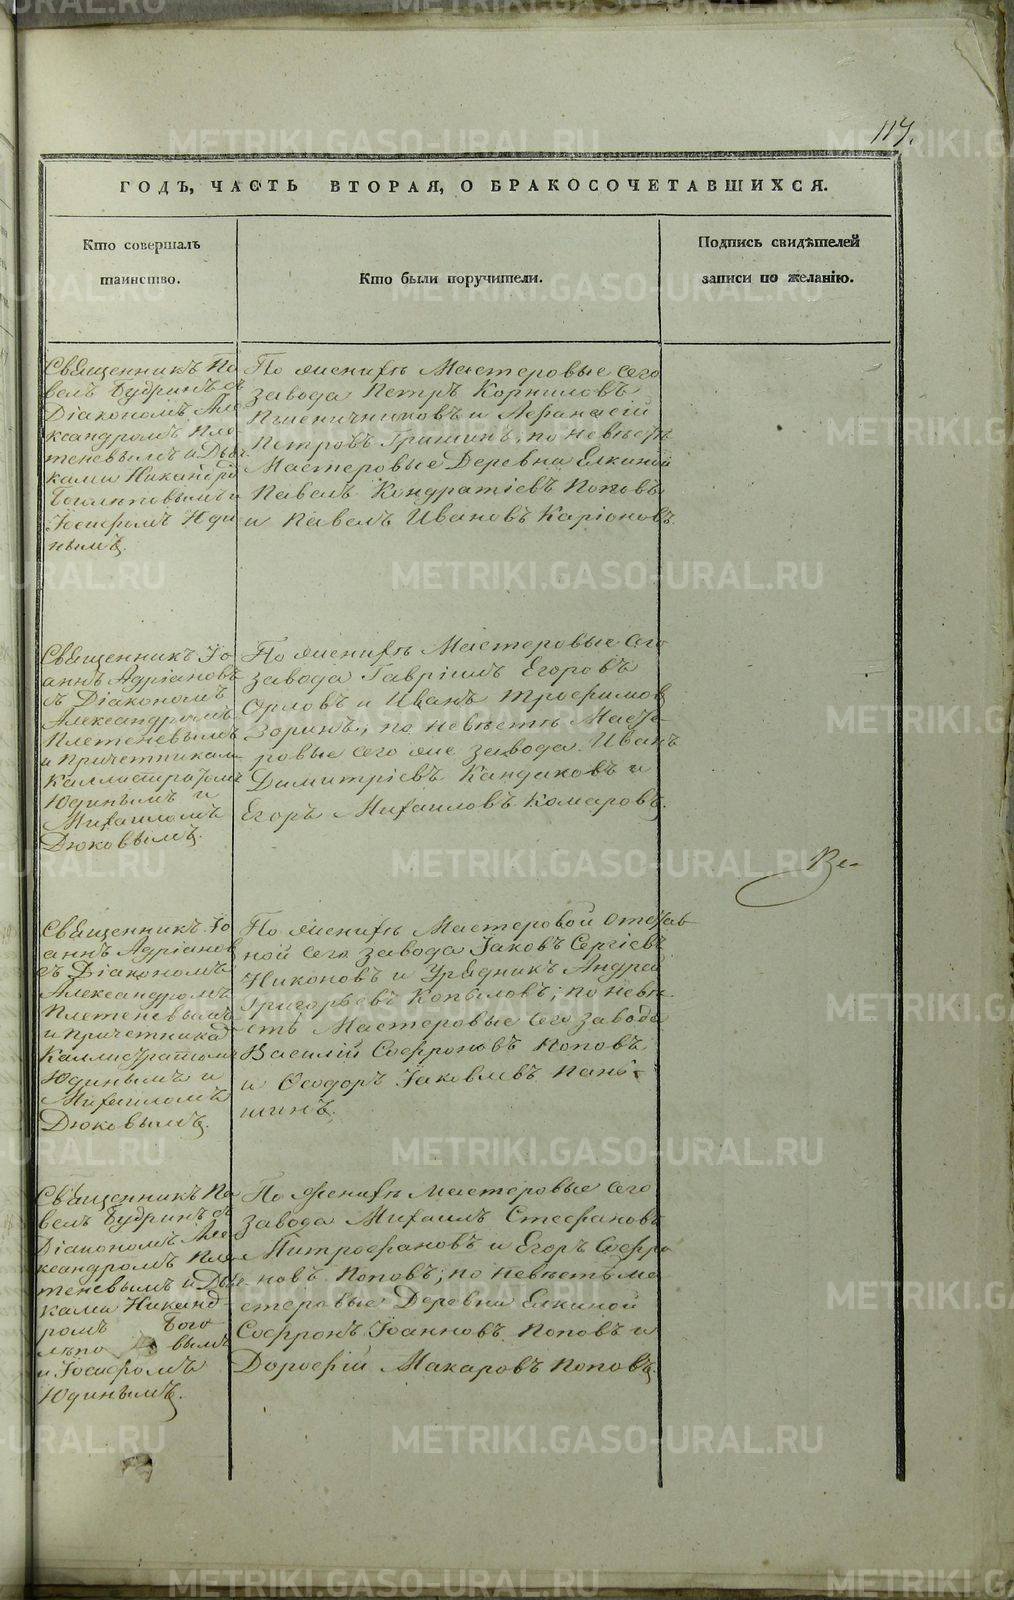 117.
ГОДЪ, ЧАСТЬ ВТОРАЯ, О БРАКОСОЧЕТАВШИХСЯ.
Кто совершалъ
таинство.
Кто были поручители.
Подпись свидѣтелей
записи по желанію.
Священникъ Па
велъ Будринъ съ
Діакономъ Але
ксандромъ Пле
теневымъ и Дьяч
ками Никандро
Боголѣповымъ и
Іосифомъ Юди
нымъ.
По женихѣ Мастеровые сего
завода Петръ Корниловъ
Пшеничниковъ и Афанасій
Петровъ Гришинъ; по невѣстѣ
Мастеровые Деревни Елкиной
Павелъ Кондратіевъ Поповъ
и Павелъ Ивановъ Каріоновъ.
Священникъ Іо
аннъ Адріановъ
съ Діакономъ
Александромъ
Плетеневымъ
и Причетникам
Каллистратомъ
Юдинымъ и
Михаиломъ
Дюковымъ.
По женихѣ Мастеровые сего
завода Гавріилъ Егоровъ
Орловъ и Иванъ Трофимов
Зоринъ; по невѣстѣ Масте-
ровые сего же завода Иванъ
Димитріевъ Кандаковъ и
Егоръ Михаиловъ Комаровъ.
Ве-
Священникъ Іо
аннъ Адріанов
съ Діакономъ
Александромъ
Плетеневымъ
и Причетника
Каллистратом
Юдинымъ и
Михаиломъ
Дюковымъ.
По женихѣ Мастеровой отстав
ной сего завода Іаковъ Сергіевъ
Никоновъ и Урядникъ Андрей
Григорьевъ Копыловъ; по невѣ-
стѣ Мастеровые сего завода
Василій Софроновъ Поповъ
и Ѳеодоръ Іаковлевъ Пань-
шинъ.
Священникъ Па
велъ Будринъ съ
Діакономъ Але
ксандромъ Пле
теневымъ и Дьяч
ками Никанд-
ромъ Бого
лѣпо вымъ
и Іосифомъ
Юдинымъ.
По женихѣ Мастеровые сего
завода Михаилъ Стефановъ
Митрофановъ и Егоръ Софро
новъ Поповъ; по невѣстѣ Ма
стеровые Деревни Елкиной
Софронъ Іоанновъ Поповъ и
Дорофій Макаровъ Поповъ.